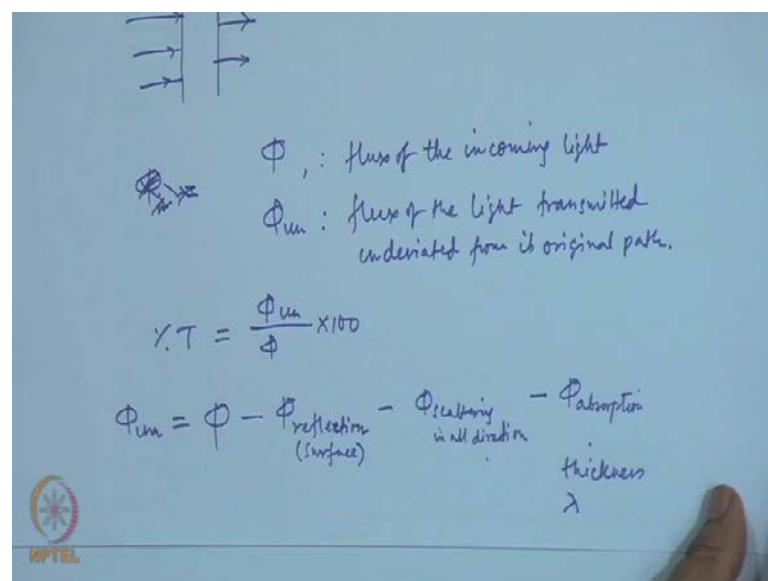 Φ, : flux of the incoming light
Φun : flux of the light transmitted
undeviated from its original path.
%T = Φun / Φ ×100
Φun = Φ − Φreflection (surface) − Φscattering in all direction − Φabsorption
thickness
λ
NPTEL